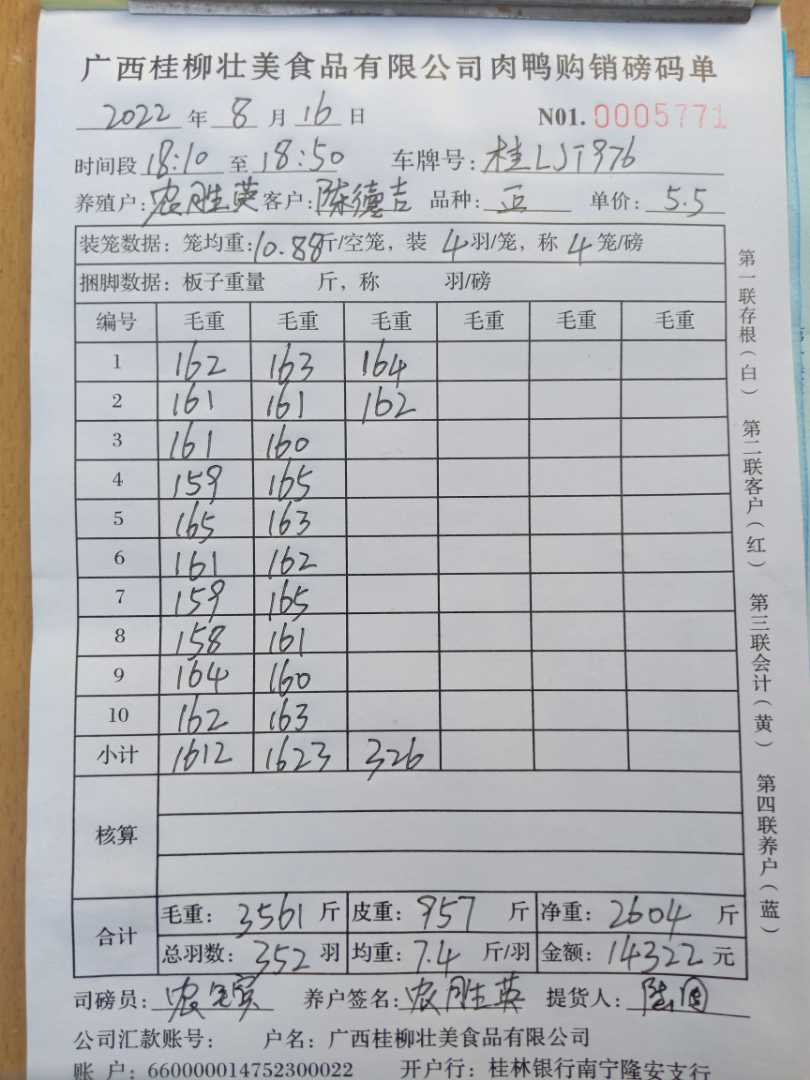 广西桂柳壮美食品有限公司肉鸭购销磅码单
2022 年 8 月 16 日 N01. 0005771
时间段 18:10 至 18:50 车牌号: 桂LJ1376
养殖户: 农胜英 客户: 陈德吉 品种: 正 单价: 5.5
装笼数据: 笼均重: 10.88 斤/空笼, 装 4 羽/笼, 称 4 笼/磅
捆脚数据: 板子重量 斤, 称 羽/磅
编号 毛重 毛重 毛重 毛重 毛重 毛重
1 162 163 164
2 161 161 162
3 161 160
4 159 165
5 165 163
6 161 162
7 159 165
8 158 161
9 164 160
10 162 163
小计 1612 1623 326
核算
合计 毛重: 3561 斤 皮重: 957 斤 净重: 2604 斤
总羽数: 352 羽 均重: 7.4 斤/羽 金额: 14322 元
司磅员: 农 养户签名: 农胜英 提货人:
公司汇款账号: 户名: 广西桂柳壮美食品有限公司
账 户: 660000014752300022 开户行: 桂林银行南宁隆安支行
第一联存根(白) 第二联客户(红) 第三联会计(黄) 第四联养户(蓝)